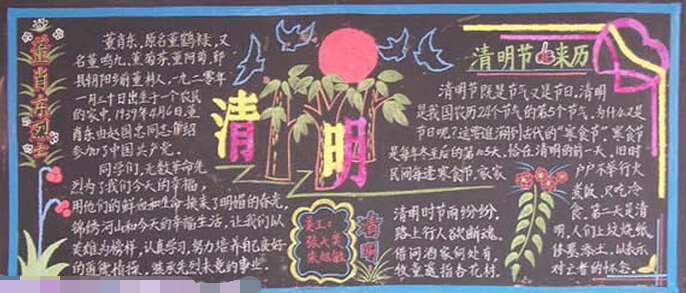 董肖东烈士
董肖东,原名董鹤楼,又
名董鸣九,董菊芬,董阿菊,鄞
县朝阳乡前董村人,一九二零年
一月三十日出生于一个农民
的家中,1939年4月6日,董
肖东由赵国忠同志介绍
参加了中国共产党。
同学们,无数革命先
烈为了我们今天的幸福,
用他们的鲜血和生命换来了明媚的春光,
锦绣河山和今天的幸福生活,让我们以
英雄为榜样,认真学习,努力培养自己良好
的道德情操,继承先烈未竟的事业.
清明
美工:
张天
朱旭敏
清明
清明节的来历
清明节既是节气又是节日.清明
是我国农历24个节气的第5个节气,为什么又是
节日呢?这要追溯到古代的“寒食节”寒食节
是每年冬至后的第105天,恰在清明的前一天,旧时
民间每逢寒食节,家家
户户不举行火
煮饭,只吃冷
食,第二天是清
明,人们上坟烧纸
修墓添土,以表示
对亡者的怀念。
清明时节雨纷纷,
路上行人欲断魂。
借问酒家何处有,
牧童遥指杏花村。